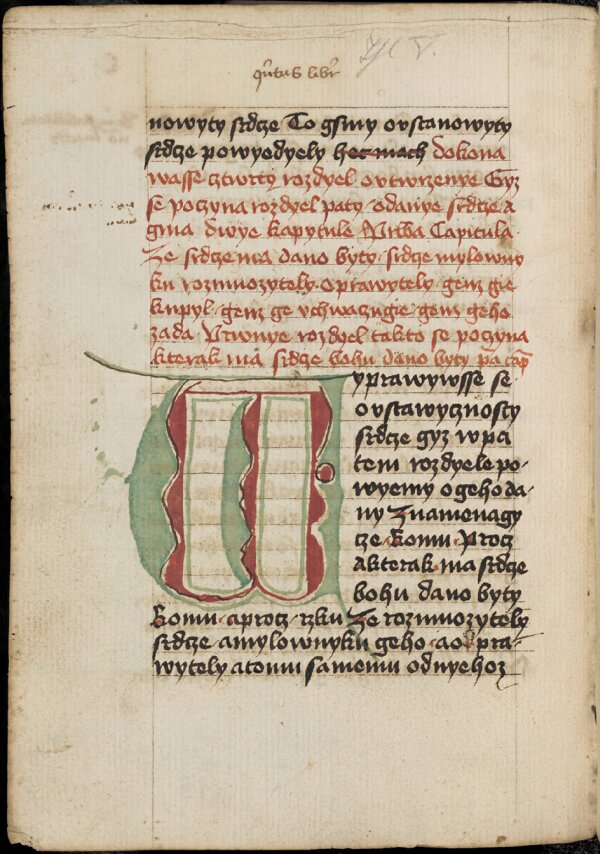 nowyty srdcze To gsmy o vstanowyty
srdcze powyedyely hec mach dokona
wasse cztwrty rozdyel o vtwrzenye Gyz
se poczyna rozdyel paty o danye srdcze A
gma dwye kapytule Prwa Capitula
Ze srdcze ma dano byty srdcze mylowny
ku rozmnozytely opprawytely genz gie
kupyl genz ge vchwaczugie genz geho
zada V rwnye rozdyel takto se poczyna
kterak ma srdcze bohu dano byty
Vyprawywsse se
o vstawycznosty
srdcze gyz w pa
tem rozdyele po
wyemy o geho da
ny Znamenagy
cze Komu Procz
A kterak ma srdcze
bohu dano byty
Komu a procz rzku Ze rozmnozytely
srdcze a mylownyku geho a o pra
wytely a tomu samemu od nyehoz